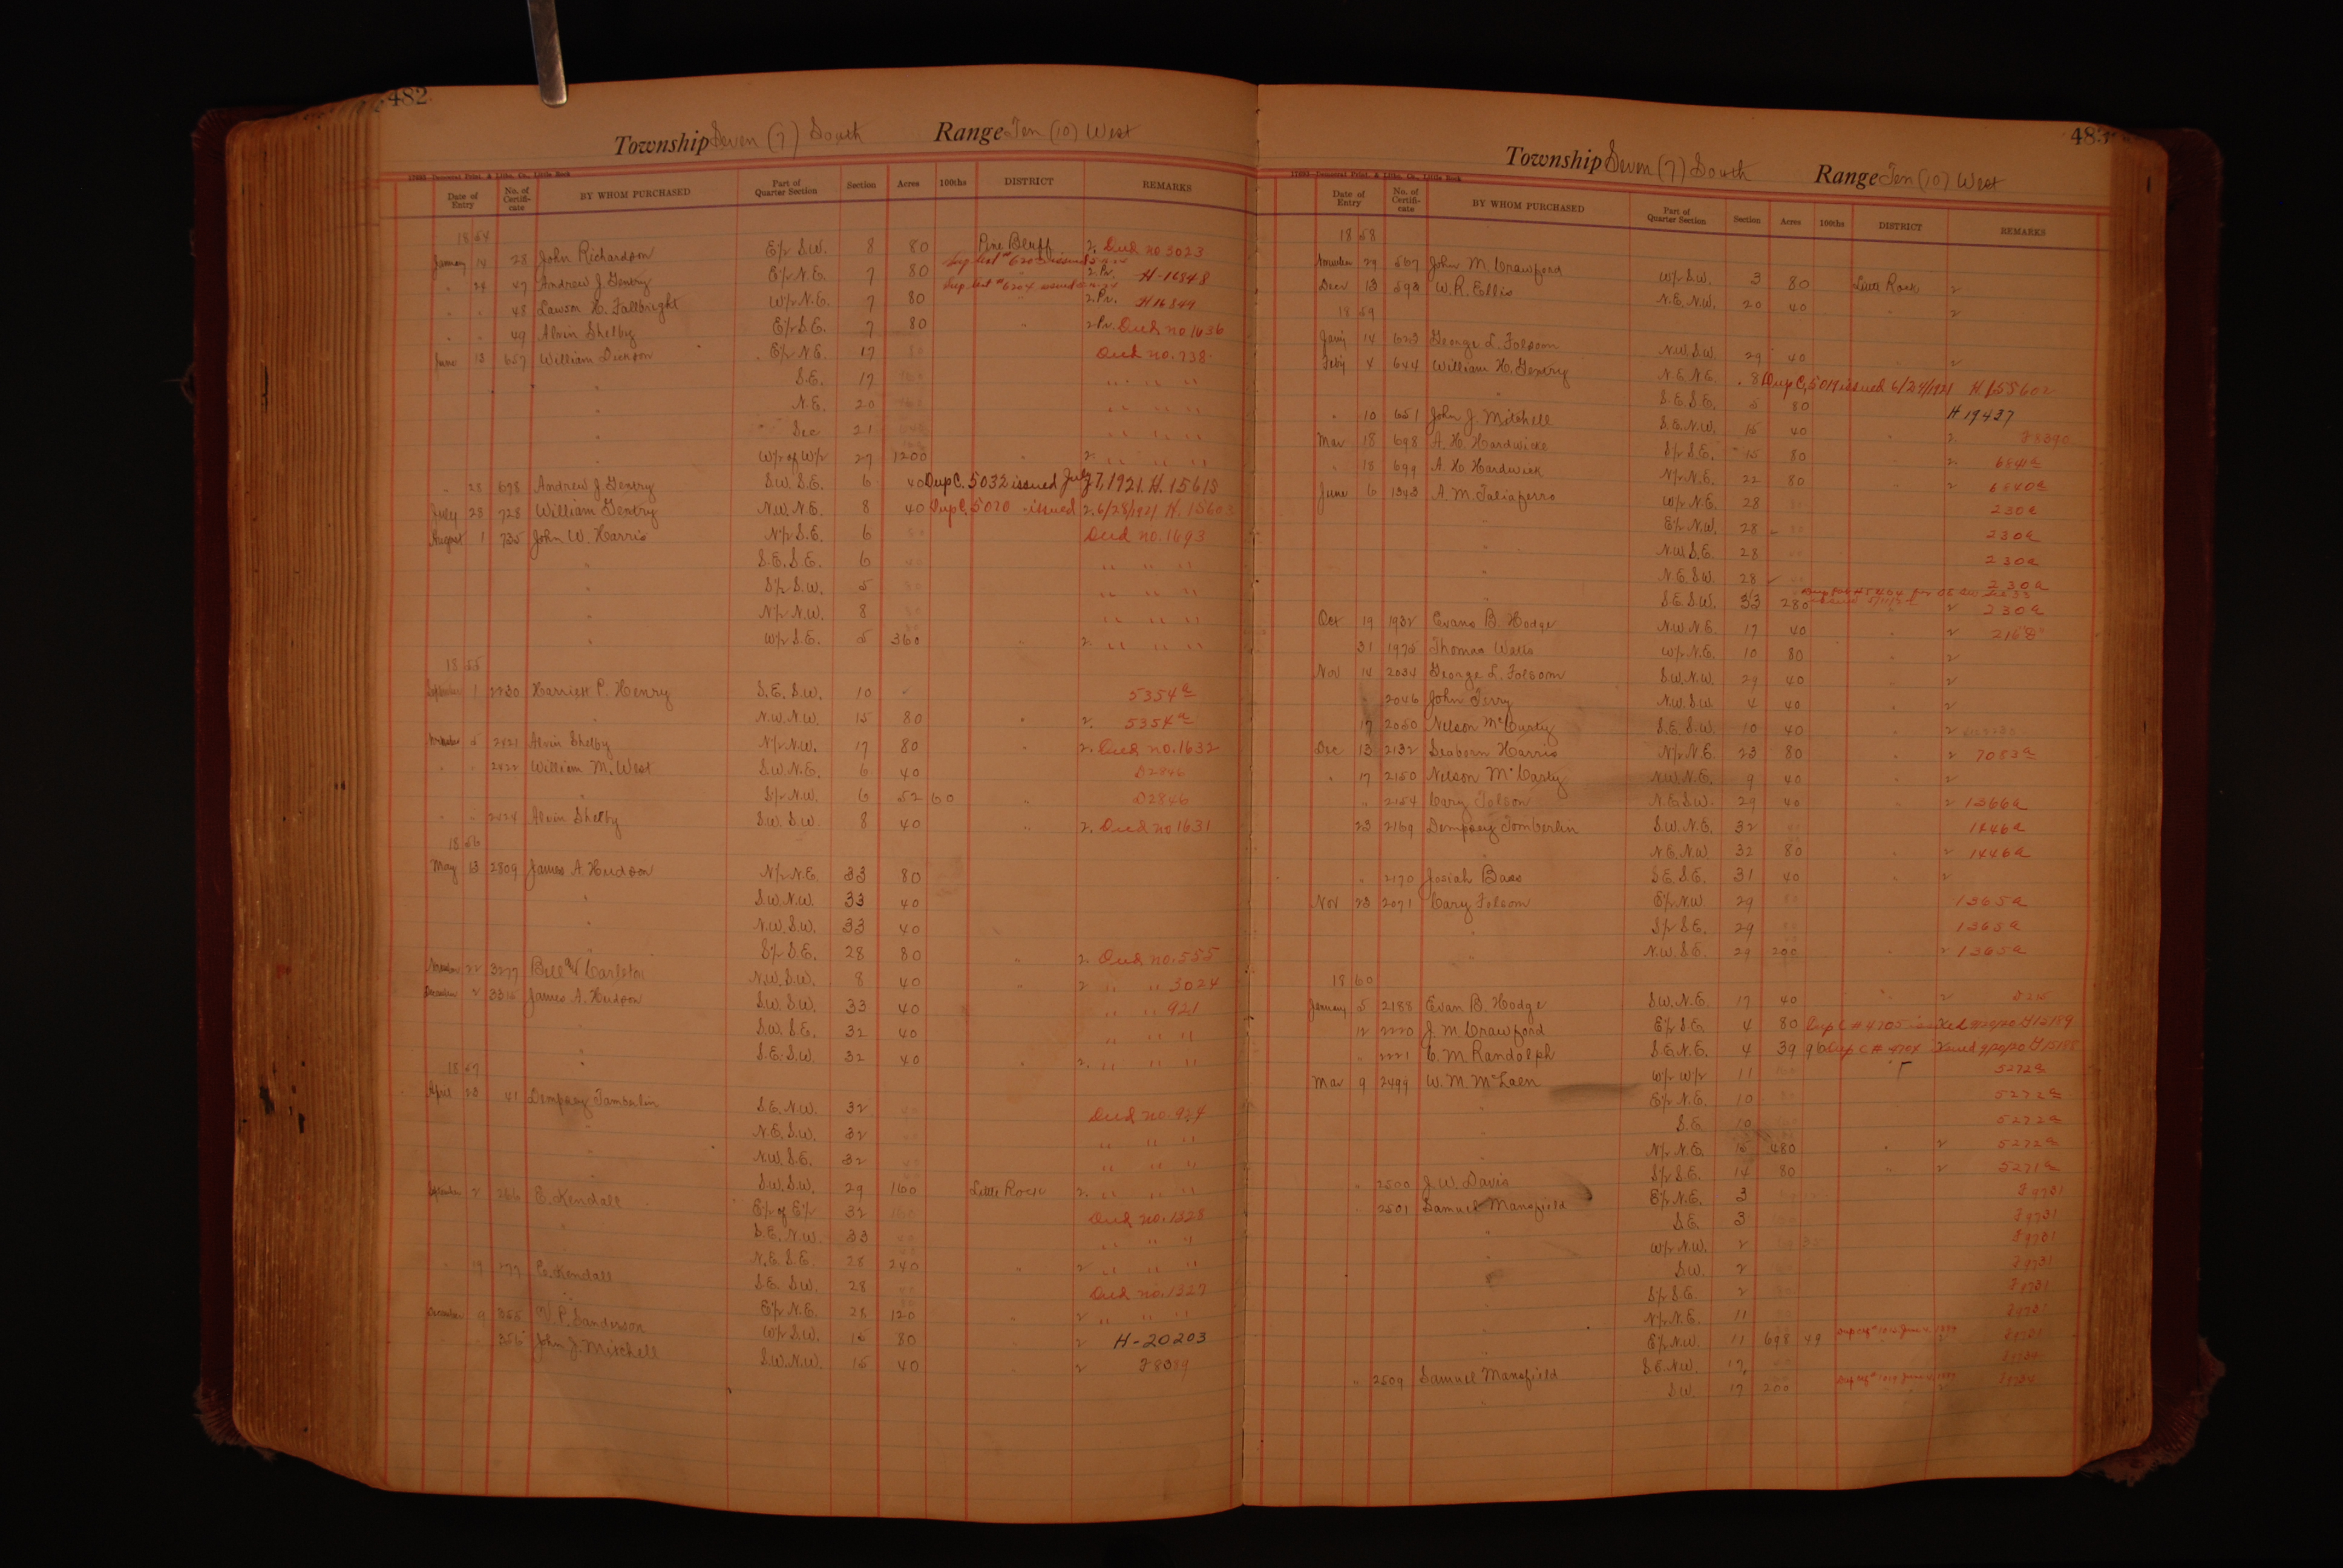 482
Township Seven (7) South Range Ten (10) West
Date of Entry No. of Certificate BY WHOM PURCHASED Part of Quarter Section Section Acres 100ths DISTRICT REMARKS
1854
January 14 28 John Richardson E½ S.W. 8 80 Pine Bluff 2. Deed no 3023
" 24 47 Andrew J. Gentry E½ N.E. 7 80 2. Pr. H-16848
" " 48 Lawson H. Fullbright W½ N.E. 7 80 " 2. Pr. H16849
" " 49 Alvin Shelby E½ S.E. 7 80 " 2 Pr. Deed no 1636
June 13 657 William Dickson E½ N.E. 17 80 Deed no. 738
" S.E. 17 " " " "
" N.E. 20 " " " "
" Sec 21 " " " "
" W½ of W½ 27 1200 " 2. " " " "
" 28 698 Andrew J. Gentry S.W. S.E. 6 40 Dup C. 5032 issued July 7, 1921. H. 15618
July 28 728 William Gentry N.W. N.E. 8 40 Dup C. 5020 issued 2. 6/28/1921 H. 15603
August 1 735 John W. Harris N½ S.E. 6 Deed no. 1693
" S.E. S.E. 6 40 " " "
" S½ S.W. 5 " " "
" N½ N.W. 8 " " "
" W½ S.E. 5 360 " 2. " " "
1855
September 1 2230 Harriett P. Henry S.E. S.W. 10 5354 a
" N.W. N.W. 15 80 " 2. 5354 a
November 5 2421 Alvin Shelby N½ N.W. 17 80 2. Deed no. 1632
" " 2422 William M. West S.W. N.E. 6 40 D2846
" S½ N.W. 6 52 60 " D2846
" " 2424 Alvin Shelby S.W. S.W. 8 40 " 2. Deed no 1631
1856
May 13 2809 James A. Hudson N½ N.E. 33 80
" S.W. N.W. 33 40
" N.W. S.W. 33 40
" S½ S.E. 28 80 " 2. Deed no. 555
November 22 3277 Bell & Carleton N.W. S.W. 8 40 " 2 " " 3024
December 2 3315 James A. Hudson S.W. S.W. 33 40 " " 921
" S.W. S.E. 32 40 " " "
" S.E. S.W. 32 40 " 2. " " "
1857
April 23 41 Dempsey Tomberlin S.E. N.W. 32 Deed no. 924
" N.E. S.W. 32 " " "
" N.W. S.E. 32 " " "
S.W. S.W. 29 160 Little Rock 2. " " "
September 2 266 E. Kendall E½ of E½ 32 160 Deed no. 1328
" S.E. N.W. 33 " " "
N.E. S.E. 28 240 " 2 " " "
" 19 277 E. Kendall S.E. S.W. 28 Deed no. 1327
" E½ N.E. 28 120 " 2 " " "
December 9 355 W. P. Sanderson W½ S.W. 15 80 " 2 H-20203
" 356 John J. Mitchell S.W. N.W. 15 40 " 2 F8389
483
Township Seven (7) South Range Ten (10) West
Date of Entry No. of Certificate BY WHOM PURCHASED Part of Quarter Section Section Acres 100ths DISTRICT REMARKS
1858
November 29 567 John M. Crawford W½ S.W. 3 80 Little Rock 2
Decr 13 593 W. R. Ellis N.E. N.W. 20 40 " 2
1859
Jany 14 623 George L. Folsom N.W. S.W. 29 40 " 2
Feby 4 644 William H. Gentry N.E. N.E. 8 Dup C. 5019 issued 6/28/1921 H. 155602
" S.E. S.E. 5 80 H 19437
" 10 651 John J. Mitchell S.E. N.W. 15 40 " 2. F8390
Mar 18 698 A. H. Hardwicke S½ S.E. 15 80 2. 6841 a
" 18 699 A. H. Hardwick N½ N.E. 22 80 " 2 6840 a
June 6 1343 A. M. Taliaferro W½ N.E. 28 230 a
E½ N.W. 28 230 a
" N.W. S.E. 28 230 a
" N.E. S.W. 28 230 a
" S.E. S.W. 33 280 " 2 230 a
Oct 19 1932 Evans B. Hodge N.W. N.E. 17 40 " 2 216
31 1975 Thomas Wells W½ N.E. 10 80 " 2
Nov 14 2034 George L. Folsom S.W. N.W. 29 40 " 2
" 2046 John Terry N.W. S.W. 4 40 " 2
17 2050 Nelson McCurly S.E. S.W. 10 40 " 2
Dec 13 2132 Seaborn Harris N½ N.E. 23 80 " 2 7083 a
" 17 2150 Nelson McCarly N.W. N.E. 9 40 " 2
" 2154 Cary Folsom N.E. S.W. 29 40 " 2 1366 a
23 2169 Dempsey Tomberlin S.W. N.E. 32 1446 a
" N.E. N.W. 32 80 " 2 1446 a
" 2170 Josiah Bass S.E. S.E. 31 40 " 2
Nov 23 2071 Cary Folsom E½ N.W. 29 1365 a
" S½ S.E. 29 1365 a
" N.W. S.E. 29 200 " 2 1365 a
1860
January 5 2188 Evan B. Hodge S.W. N.E. 17 40 " 2 D215
12 2220 J. M. Crawford E½ S.E. 4 80 Dup C # 4705 issued 9/20/20 H15189
" 2221 C. M. Randolph S.E. N.E. 4 39 96 Dup C # 4704 issued 9/20/20 H15188
Mar 9 2499 W. M. McLaen W½ W½ 11 5272 a
" E½ N.E. 10 5272 a
" S.E. 10 5272 a
" N½ N.E. 15 480 " 2 5272 a
" 2500 J. W. Davis S½ S.E. 14 80 " 2 5271 a
" 2501 Samuel Mansfield E½ N.E. 3 F9731
" S.E. 3 F9731
" W½ N.W. 2 F9731
" S.W. 2 F9731
" S½ S.E. 2 F9731
" N½ N.E. 11 F9731
" E½ N.W. 11 698 49 F9731
" 2509 Samuel Mansfield S.E. N.W. 17
" S.W. 17 200